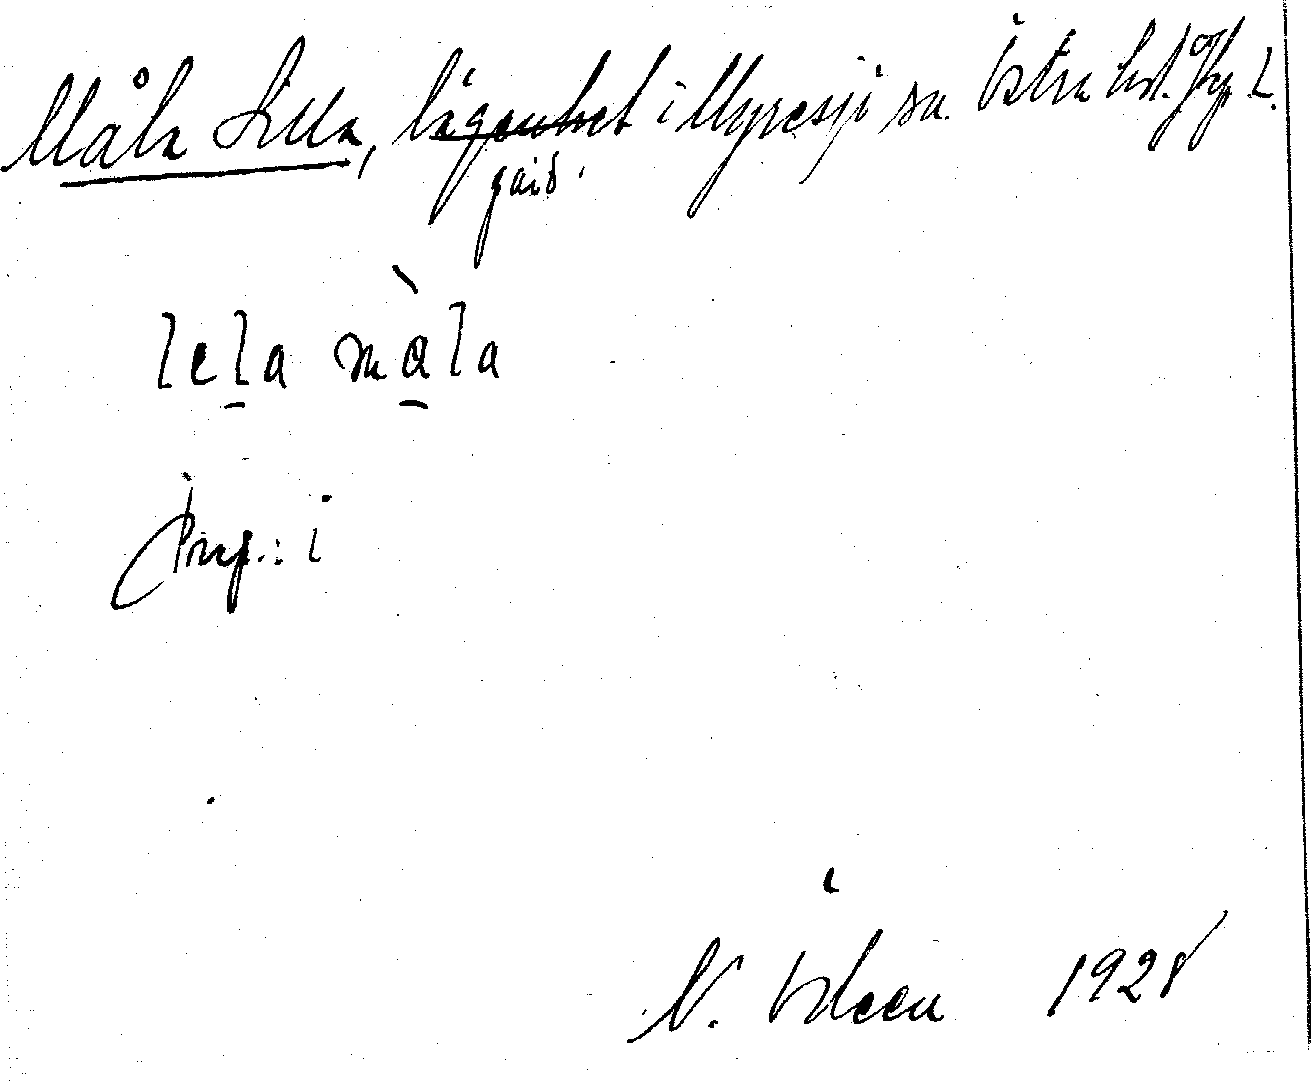 Måla Lilla, lägenhet i Myresjö sn. Östra hd. Jkp. L.
gård.
lela màla
Prep.: i
N. Ödeen 1928